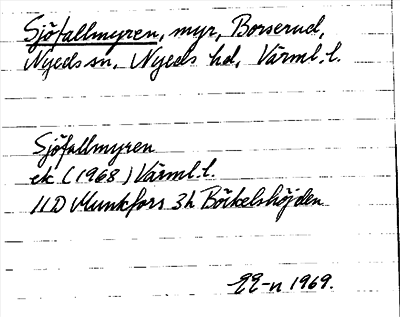 Sjöfallmyren, myr, Borserud,
Nyeds sn, Nyeds hd, Värml. l.
Sjöfallmyren
ek (1968) Värml. l.
11D Munkfors 3h Böckelshöjden
1969.